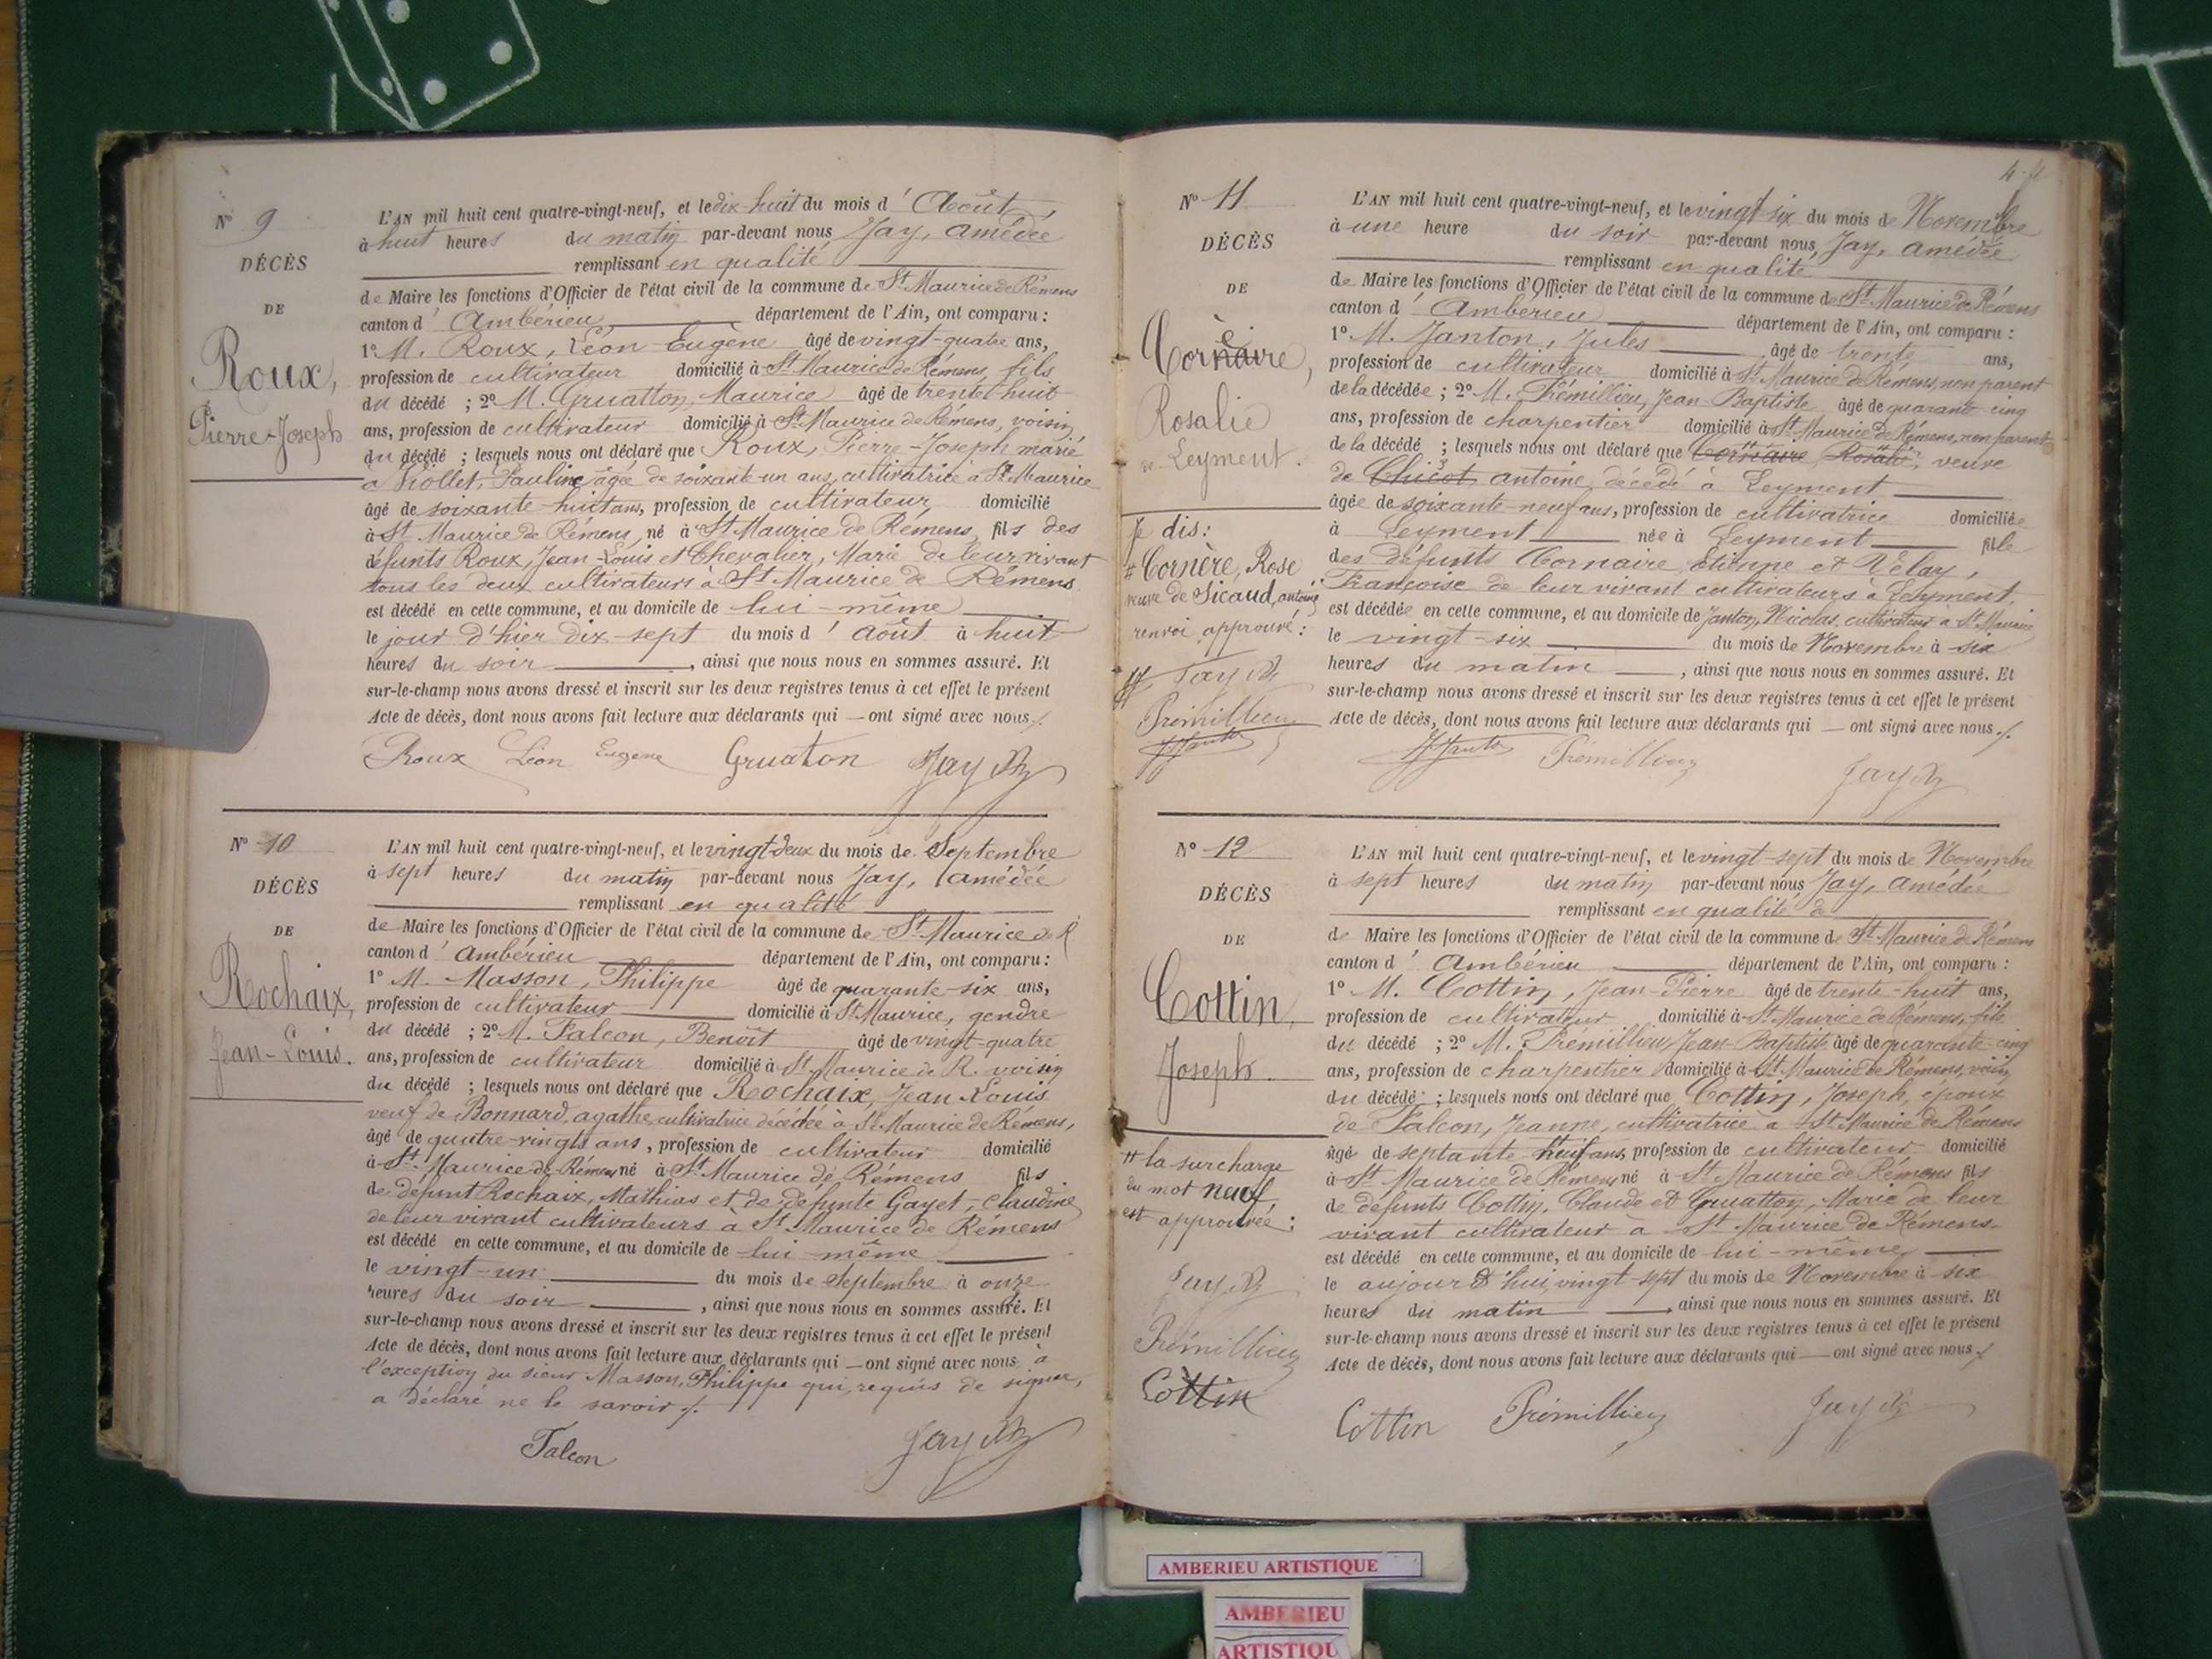 N° 9
DÉCÈS
DE
Roux,
Pierre-Joseph
L'AN mil huit cent quatre-vingt-neuf, et le dix-huit du mois d'Août,
à huit heures du matin par-devant nous Jay, Amédée
remplissant en qualité
de Maire les fonctions d'Officier de l'état civil de la commune de St Maurice de Rémens
canton d'Ambérieu département de l'Ain, ont comparu :
1° M. Roux, Léon Eugène âgé de vingt-quatre ans,
profession de cultivateur domicilié à St Maurice de Rémens, fils
du décédé ; 2° M. Gruatton, Maurice âgé de trente huit
ans, profession de cultivateur domicilié à St Maurice de Rémens, voisin
du décédé ; lesquels nous ont déclaré que Roux, Pierre-Joseph marié
à Pauline âgée de soixante un ans, cultivatrice à St Maurice
âgé de soixante-huit ans, profession de cultivateur, domicilié
à St Maurice de Rémens, né à St Maurice de Remens, fils des
défunts Roux, Jean-Louis et Chevalier, Marie de leur vivant
tous les deux cultivateurs à St Maurice de Rémens
est décédé en cette commune, et au domicile de lui-même
le jour d'hier dix-sept du mois d'août à huit
heures du soir, ainsi que nous nous en sommes assuré. Et
sur-le-champ nous avons dressé et inscrit sur les deux registres tenus à cet effet le présent
Acte de décès, dont nous avons fait lecture aux déclarants qui — ont signé avec nous ./.
Roux Léon Eugene Gruaton Jay
N° 10
DÉCÈS
DE
Rochaix,
Jean-Louis.
L'AN mil huit cent quatre-vingt-neuf, et le vingt-deux du mois de Septembre
à sept heures du matin par-devant nous Jay, Amédée
remplissant en qualité
de Maire les fonctions d'Officier de l'état civil de la commune de St Maurice de R
canton d'Ambérieu département de l'Ain, ont comparu :
1° M. Masson, Philippe âgé de quarante-six ans,
profession de cultivateur domicilié à St Maurice, gendre
du décédé ; 2° M. Falcon, Benoît âgé de vingt-quatre
ans, profession de cultivateur domicilié à St Maurice de R. voisin
du décédé ; lesquels nous ont déclaré que Rochaix, Jean Louis
veuf de Bonnard, agathe, cultivatrice décédée à St Maurice de Rémens,
âgé de quatre-vingts ans, profession de cultivateur domicilié
à St Maurice de Rémens né à St Maurice de Rémens fils
de défunt Rochaix, Mathias et de défunte Gayet, Claudine
de leur vivant cultivateurs à St Maurice de Rémens
est décédé en cette commune, et au domicile de lui-même
le vingt-un du mois de Septembre à onze
heures du soir, ainsi que nous nous en sommes assuré. Et
sur-le-champ nous avons dressé et inscrit sur les deux registres tenus à cet effet le présent
Acte de décès, dont nous avons fait lecture aux déclarants qui — ont signé avec nous à
l'exception du sieur Masson, Philippe qui, requis de signer,
a déclaré ne le savoir ./.
Falcon Jay
N° 11
DÉCÈS
DE
Cornaire,
Rosalie
Leyment.
je dis:
# Cornère, Rose
veuve de Sicaud, antoine
renvoi approuvé :
Jay
Prémillieu
J Janto
L'AN mil huit cent quatre-vingt-neuf, et le vingt-six du mois de Novembre
à une heure du soir par-devant nous Jay, Amédée
remplissant en qualité
de Maire les fonctions d'Officier de l'état civil de la commune de St Maurice de Rémens
canton d'Ambérieu département de l'Ain, ont comparu :
1° M. Janton, Jules âgé de trente ans,
profession de cultivateur domicilié à St Maurice de Rémens, non parent
de la décédée ; 2° M. Prémillieu, Jean-Baptiste âgé de quarante-cinq
ans, profession de charpentier domicilié à St Maurice de Rémens, non parent
de la décédé ; lesquels nous ont déclaré que Cornaire, Rosalie, veuve
de Chicot antoine, décédé à Leyment
âgée de soixante-neuf ans, profession de cultivatrice domiciliée
à Leyment née à Leyment fille
des défunts Cornaire, Etienne et Vélay,
Françoise de leur vivant cultivateurs à Leyment,
est décédée en cette commune, et au domicile de Janton, Nicolas, cultivateur à St Maurice
le vingt-six du mois de Novembre à six
heures du matin, ainsi que nous nous en sommes assuré. Et
sur-le-champ nous avons dressé et inscrit sur les deux registres tenus à cet effet le présent
Acte de décès, dont nous avons fait lecture aux déclarants qui — ont signé avec nous ./.
J Janto Prémillieu Jay
N° 12
DÉCÈS
DE
Cottin,
Joseph.
# la surcharge
du mot neuf
est approuvée :
Jay
Prémillieu
Cottin
L'AN mil huit cent quatre-vingt-neuf, et le vingt-sept du mois de Novembre
à sept heures du matin par-devant nous Jay, Amédée
remplissant en qualité de
de Maire les fonctions d'Officier de l'état civil de la commune de St Maurice de Rémens
canton d'Ambérieu département de l'Ain, ont comparu :
1° M. Cottin, Jean-Pierre âgé de trente-huit ans,
profession de cultivateur domicilié à St Maurice de Rémens, fils
du décédé ; 2° M. Prémillieu, Jean-Baptiste âgé de quarante-cinq
ans, profession de charpentier domicilié à St Maurice de Rémens, voisin
du décédé ; lesquels nous ont déclaré que Cottin, Joseph, époux
de Falcon, Jeanne, cultivatrice à St Maurice de Rémens
âgé de septante-neuf ans, profession de cultivateur domicilié
à St Maurice de Rémens né à St Maurice de Rémens fils
de défunts Cottin, Claude et Gruatton, Marie de leur
vivant cultivateur à St Maurice de Rémens
est décédé en cette commune, et au domicile de lui-même
le aujourd'hui, vingt-sept du mois de Novembre à six
heures du matin, ainsi que nous nous en sommes assuré. Et
sur-le-champ nous avons dressé et inscrit sur les deux registres tenus à cet effet le présent
Acte de décès, dont nous avons fait lecture aux déclarants qui — ont signé avec nous ./.
Cottin Prémillieu Jay
AMBERIEU ARTISTIQUE
AMBERIEU
ARTISTIQU